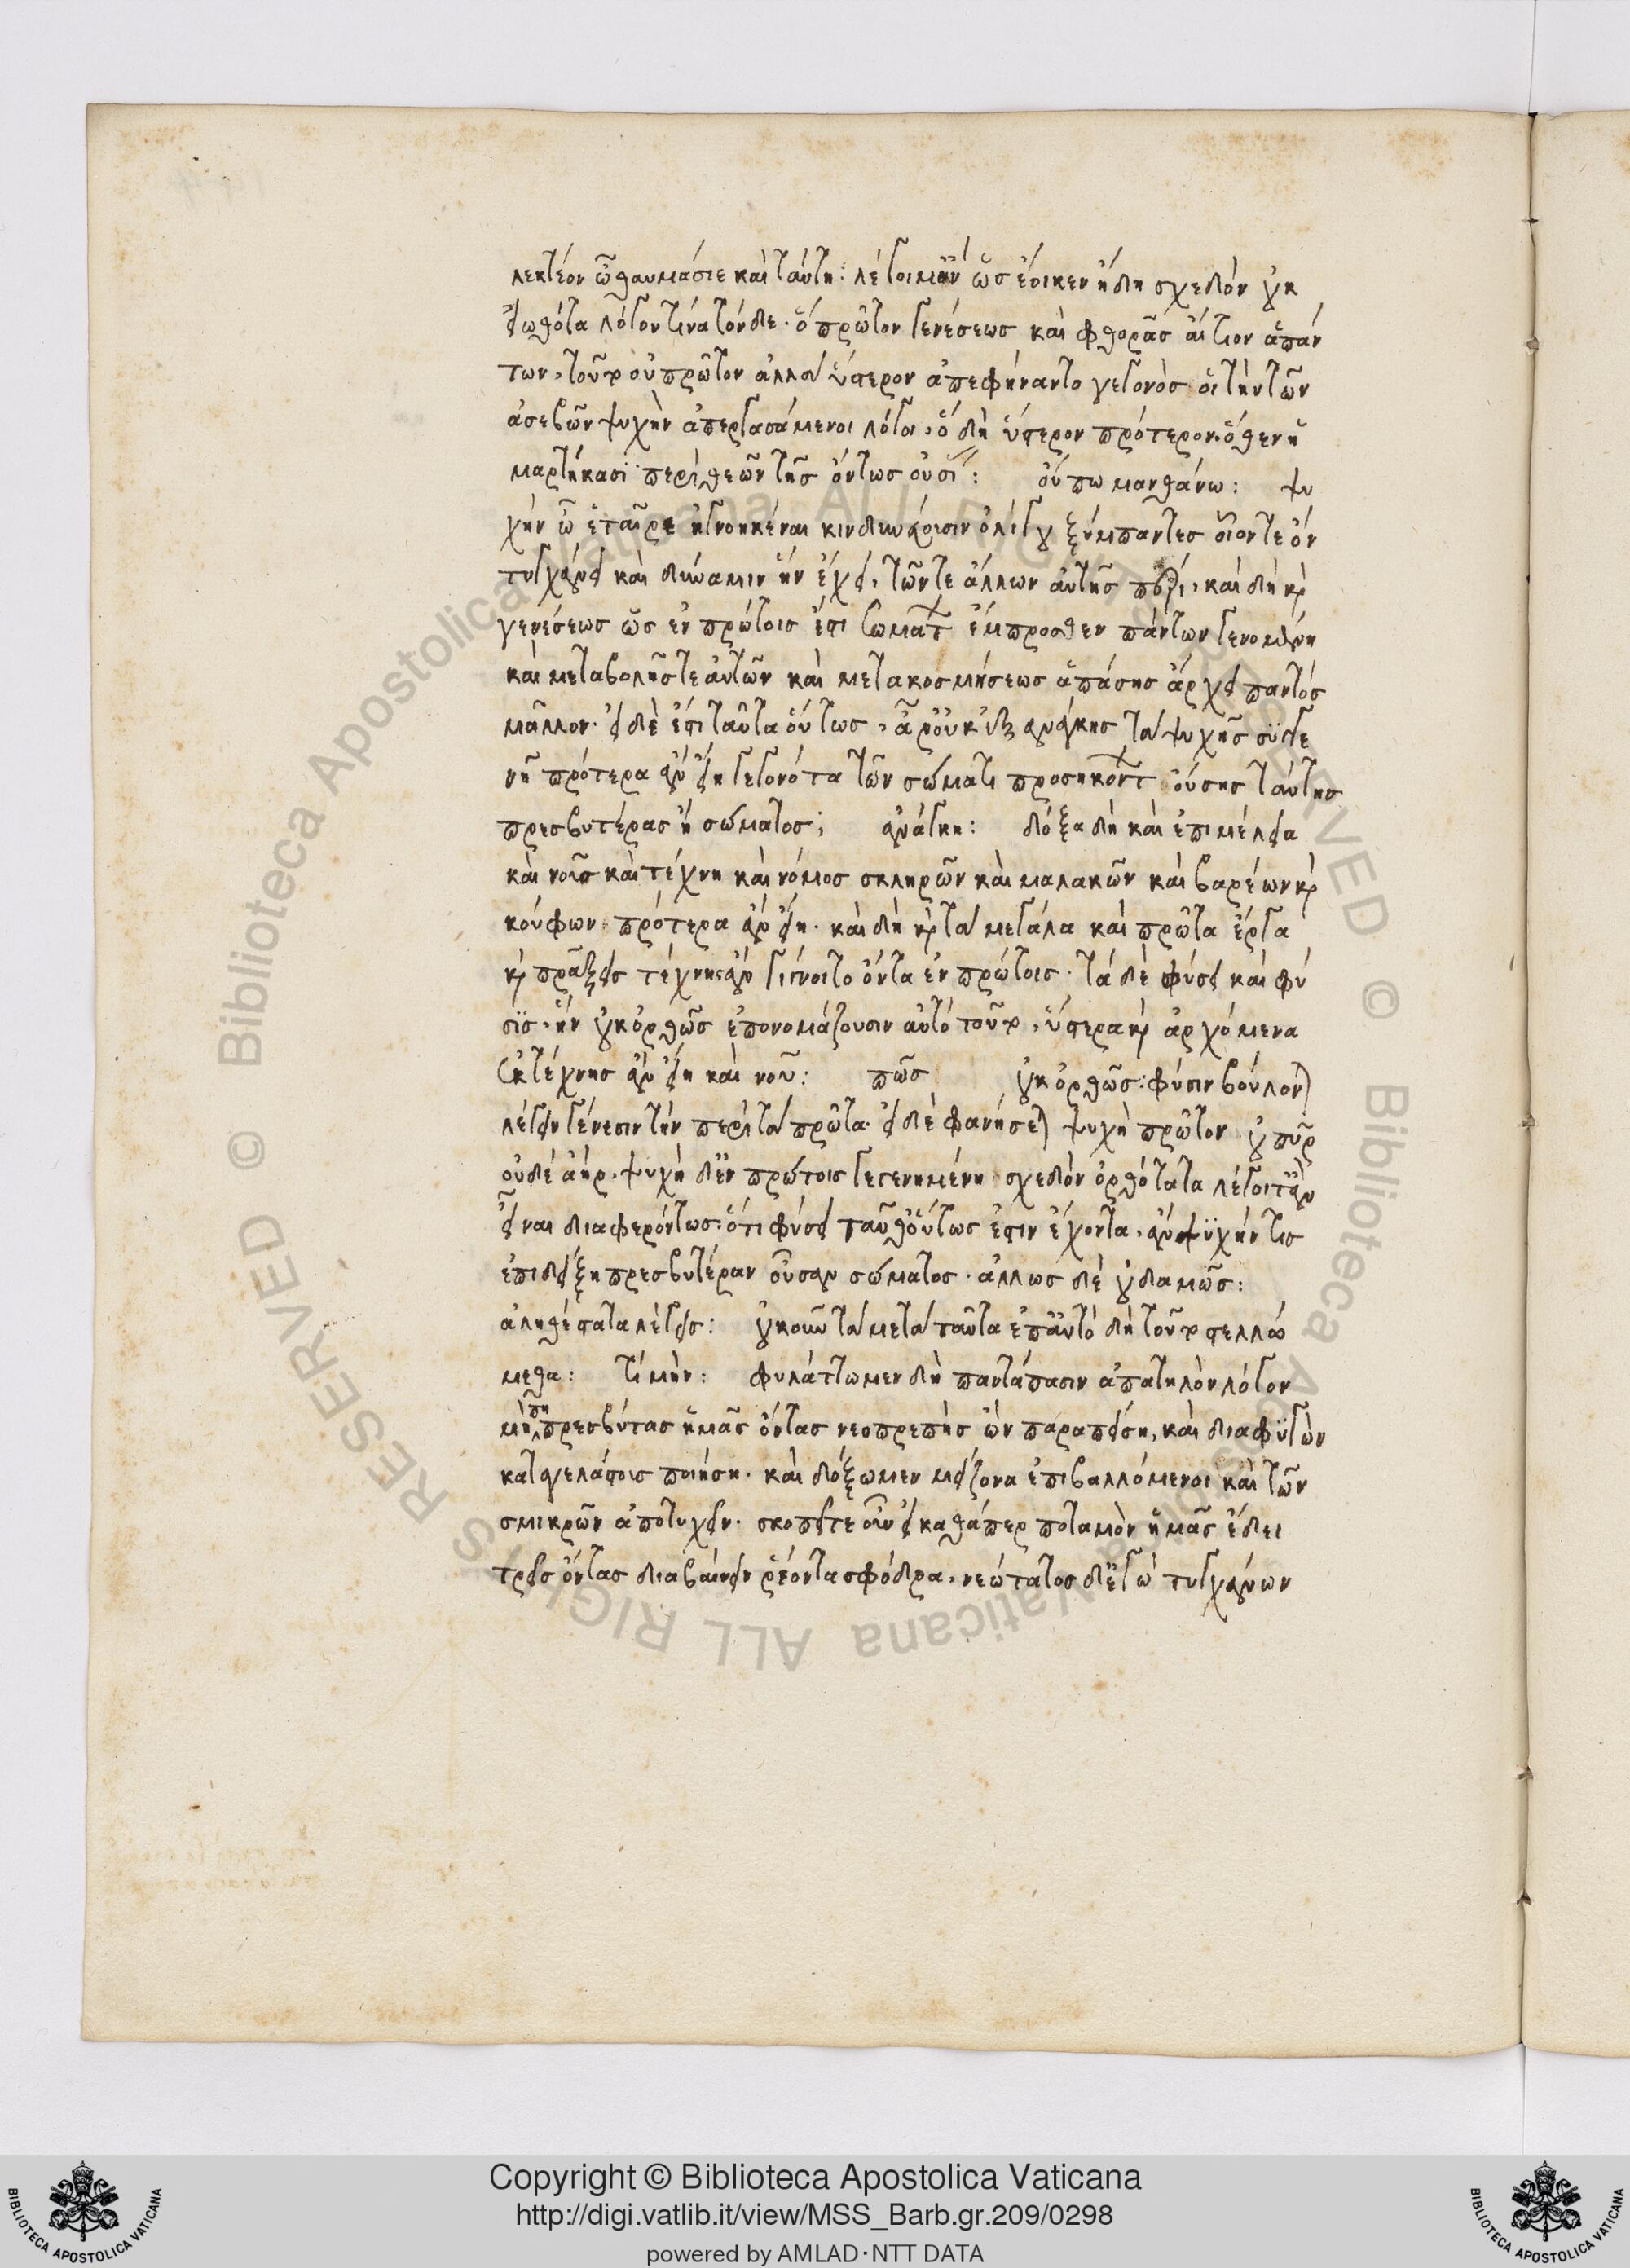 λεκτέον ὦ θαυμάσιε καὶ ταύτη: λέγοιμ' ἂν ὡς ἔοικεν ἤδη σχεδὸν οὐκ
εἰωθότα λόγον τινὰ τόνδε· ὃ πρῶτον γενέσεως καὶ φθορᾶς αἴτιον ἁπάν
των, τοῦτο οὐ πρῶτον ἀλλὰ ὕστερον ἀπεφήναντο γεγονὸς οἱ τὴν τῶν
ἀσεβῶν ψυχὴν ἀπεργασάμενοι λόγοι, ὃ δὴ ὕστερον πρότερον· ὅθεν ἡ
μαρτήκασι περὶ θεῶν τῆς ὄντως οὐσίας: οὔπω μανθάνω: ψυ
χὴν ὦ ἑταῖρε ἠγνοηκέναι κινδυνεύουσιν ὀλίγου ξύμπαντες οἷόν τε ὂν
τυγχάνει καὶ δύναμιν ἣν ἔχει, τῶν τε ἄλλων αὐτῆς πέρι, καὶ δὴ καὶ
γενέσεως ὡς ἐν πρώτοις ἐστὶ σωμάτων ἔμπροσθεν πάντων γενομένη
καὶ μεταβολῆς τε αὐτῶν καὶ μετακοσμήσεως ἁπάσης ἄρχει παντὸς
μᾶλλον· εἰ δὲ ἐστὶ ταῦτα οὕτως, ἆρ' οὐκ ἐξ ἀνάγκης τὰ ψυχῆς συγγε
νῆ πρότερα ἂν εἴη γεγονότα τῶν σώματι προσηκόντων οὔσης ταύτης
πρεσβυτέρας ἢ σώματος; ἀνάγκη: δόξα δὴ καὶ ἐπιμέλεια
καὶ νοῦς καὶ τέχνη καὶ νόμος σκληρῶν καὶ μαλακῶν καὶ βαρέων καὶ
κούφων πρότερα ἂν εἴη· καὶ δὴ καὶ τὰ μεγάλα καὶ πρῶτα ἔργα
καὶ πράξεις τέχνης ἂν γίγνοιτο ὄντα ἐν πρώτοις· τὰ δὲ φύσει καὶ φύ
σις, ἣν οὐκ ὀρθῶς ἐπονομάζουσιν αὐτὸ τοῦτο, ὕστερα καὶ ἀρχόμενα
ἐκ τέχνης ἂν εἴη καὶ νοῦ: πῶς οὐκ ὀρθῶς: φύσιν βούλονται
λέγειν γένεσιν τὴν περὶ τὰ πρῶτα· εἰ δὲ φανήσεται ψυχὴ πρῶτον οὐ πῦρ
οὐδὲ ἀήρ, ψυχὴ δ' ἐν πρώτοις γεγενημένη σχεδὸν ὀρθότατα λέγοιτ' ἂν
εἶναι διαφερόντως ὅτι φύσει ταῦθ' οὕτως ἐστὶν ἔχοντα, ἂν ψυχήν τις
ἐπιδείξη πρεσβυτέραν οὖσαν σώματος· ἄλλως δὲ οὐδαμῶς:
ἀληθέστατα λέγεις: οὐκοῦν τὰ μετὰ ταῦτα ἐπ' αὐτὸ δὴ τοῦτο στελλώ
μεθα: τί μήν: φυλάττωμεν δὴ παντάπασιν ἀπατηλὸν λόγον
μή πη πρεσβύτας ἡμᾶς ὄντας νεοπρεπὴς ὢν παραπείση, καὶ διαφυγὼν
καταγελάστους ποιήση· καὶ δόξωμεν μείζονα ἐπιβαλλόμενοι καὶ τῶν
σμικρῶν ἀποτυχεῖν· σκοπεῖτε οὖν εἰ καθάπερ ποταμὸν ἡμᾶς ἔδει
τρεῖς ὄντας διαβαίνειν ῥέοντα σφόδρα, νεώτατος δ' ἐγὼ τυγχάνων
Copyright © Biblioteca Apostolica Vaticana
http://digi.vatlib.it/view/MSS_Barb.gr.209/0298
powered by AMLAD·NTT DATA